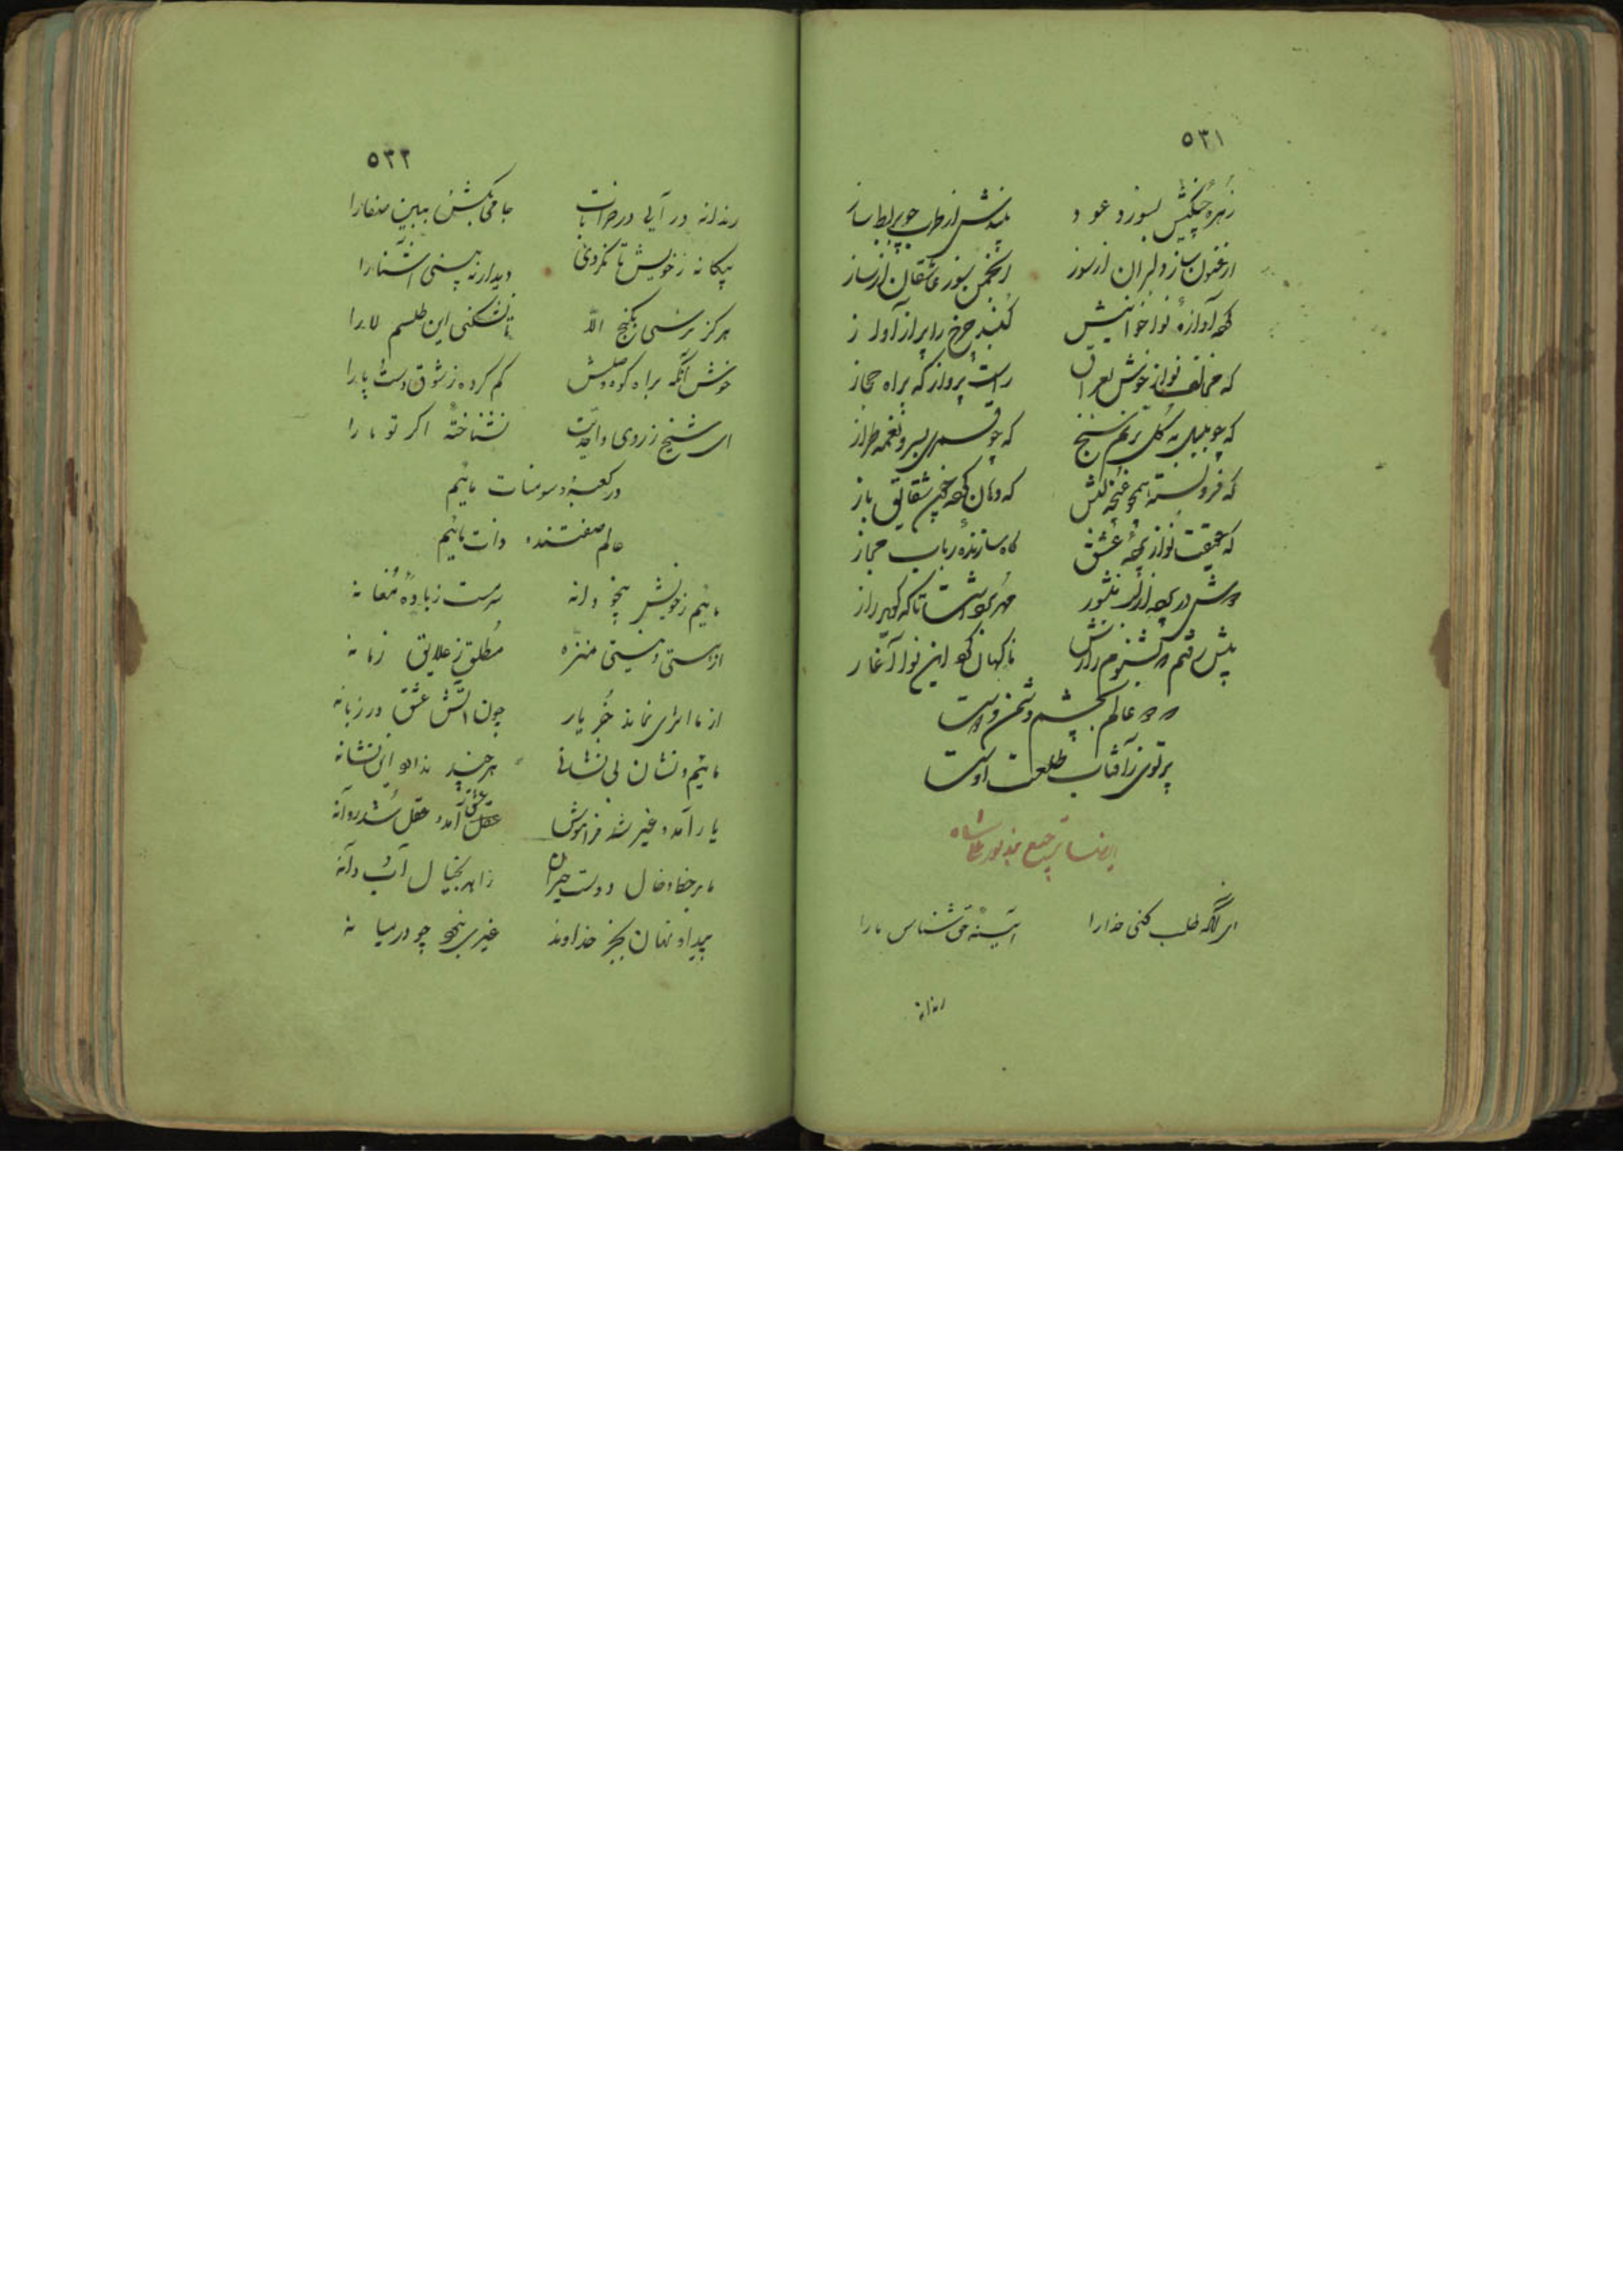 ٥٣١
زهره چنگیش بسوزد عود
ارغنون ساز دلبران از سوز انجمن سوز عاشقان از ساز
گنبد چرخ را پر از آواز
که مخالف نواز خوش بعراق راست پرواز که براه حجاز
که چو بلبل به گل ترنم سنج که چو قمری بسرو نغمه طراز
که فروبسته همچو غنچه لبش که دهان کرده چون شقایق باز
که حقیقت نواز عشق گاه سازنده رباب مجاز
پیش رفتم ناگهان کرد این نوا آغاز
دو عالم بچشم دشمن و دوست
پرتوی ز آفتاب طلعت اوست
ایضا ترجیع بند نور علیشاه
ای آنکه طلب کنی خدا را آئینه حق شناس ما را
رندانه
٥٣٢
رندانه در آیی در خرابات جامی بکش ببین صفا را
بیکانه ز خویش تا نکردی دیدار نه بینی آشنا را
هرکز نرسی بکنج الا تا نشکنی این طلسم لا را
خوش آنکه براه کوی وصلش کم کرده ز شوق دست و پا را
ای شیخ ز روی واحدیت نشناخته اکر تو ما را
در کعبه و سومنات مائیم
عالم صفتند و ذات مائیم
مائیم ز خویش بیخودانه سرمست ز باده مغانه
از هستی و نیستی منزه مطلق ز علایق زمانه
از ما اثری نماند جز یار چون آتش عشق در زبانه
مائیم و نشان بی نشانی هرچند نداد او نشانه
یار آمد و غیر شد فراموش عشق آمد و عقل شد روانه
ما بر خط و خال دوست حیران زاهد بخیال آب و دانه
پیدا و نهان بجز خداوند غیری نبود چو در میانه